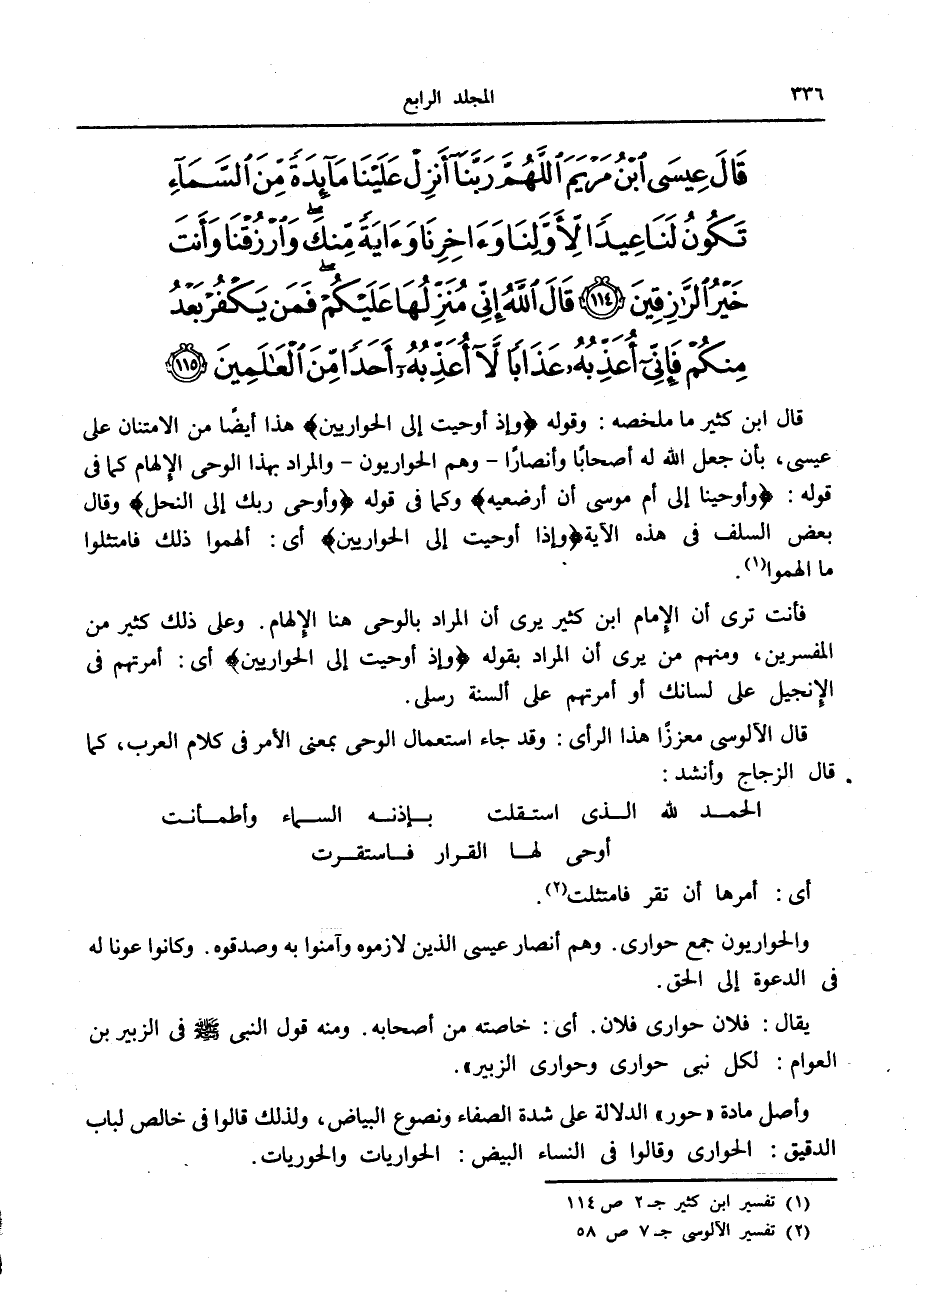 ٣٣٦
المجلد الرابع
قَالَ عِيسَى ٱبْنُ مَرْيَمَ ٱللَّهُمَّ رَبَّنَآ أَنزِلْ عَلَيْنَا مَآئِدَةً مِّنَ ٱلسَّمَآءِ
تَكُونُ لَنَا عِيدًا لِّأَوَّلِنَا وَءَاخِرِنَا وَءَايَةً مِّنكَ ۖ وَٱرْزُقْنَا وَأَنتَ
خَيْرُ ٱلرَّٰزِقِينَ ﴿١١٤﴾ قَالَ ٱللَّهُ إِنِّى مُنَزِّلُهَا عَلَيْكُمْ ۖ فَمَن يَكْفُرْ بَعْدُ
مِنكُمْ فَإِنِّىٓ أُعَذِّبُهُۥ عَذَابًا لَّآ أُعَذِّبُهُۥٓ أَحَدًا مِّنَ ٱلْعَٰلَمِينَ ﴿١١٥﴾
قال ابن كثير ما ملخصه : وقوله ﴿وإذ أوحيت إلى الحواريين﴾ هذا أيضًا من الامتنان على
عيسى، بأن جعل الله له أصحابًا وأنصارًا - وهم الحواريون - والمراد بهذا الوحى الإلهام كما فى
قوله : ﴿وأوحينا إلى أم موسى أن أرضعيه﴾ وكما فى قوله ﴿وأوحى ربك إلى النحل﴾ وقال
بعض السلف فى هذه الآية﴿وإذا أوحيت إلى الحواريين﴾ أى : ألهموا ذلك فامتثلوا
ما الهموا(١).
فأنت ترى أن الإمام ابن كثير يرى أن المراد بالوحى هنا الإلهام. وعلى ذلك كثير من
المفسرين، ومنهم من يرى أن المراد بقوله ﴿وإذ أوحيت إلى الحواريين﴾ أى : أمرتهم فى
الإنجيل على لسانك أو أمرتهم على ألسنة رسلى.
قال الألوسى معززًا هذا الرأى : وقد جاء استعمال الوحى بمعنى الأمر فى كلام العرب، كما
قال الزجاج وأنشد :
الحمد لله الذى استقلت بإذنه السماء وأطمأنت
أوحى لها القرار فاستقرت
أى : أمرها أن تقر فامتثلت(٢).
والحواريون جمع حوارى. وهم أنصار عيسى الذين لازموه وآمنوا به وصدقوه. وكانوا عونا له
فى الدعوة إلى الحق.
يقال : فلان حوارى فلان. أى : خاصته من أصحابه. ومنه قول النبى ﷺ فى الزبير بن
العوام : لكل نبى حوارى وحوارى الزبير».
وأصل مادة «حور» الدلالة على شدة الصفاء ونصوع البياض، ولذلك قالوا فى خالص لباب
الدقيق : الحوارى وقالوا فى النساء البيض : الحواريات والحوريات.
(١) تفسير ابن كثير جـ٢ ص ١١٤
(٢) تفسير الألوسى جـ٧ ص ٥٨